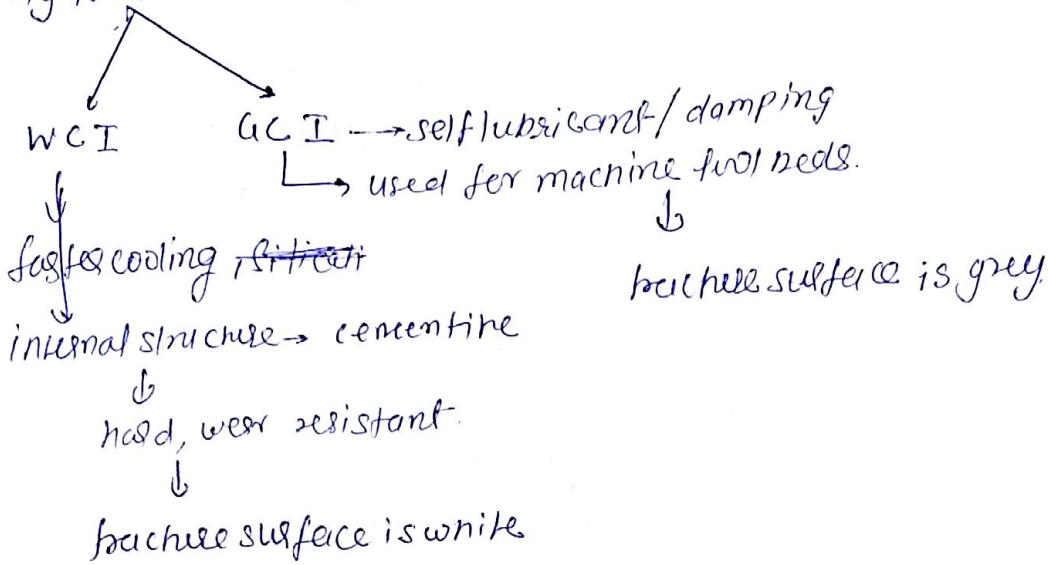 WCI GCI → self lubricant / damping
↳ used for machine tool beds.
↓
faster cooling,
fracture surface is grey.
internal structure → cementine
↓
hard, wear resistant.
↓
fracture surface is white